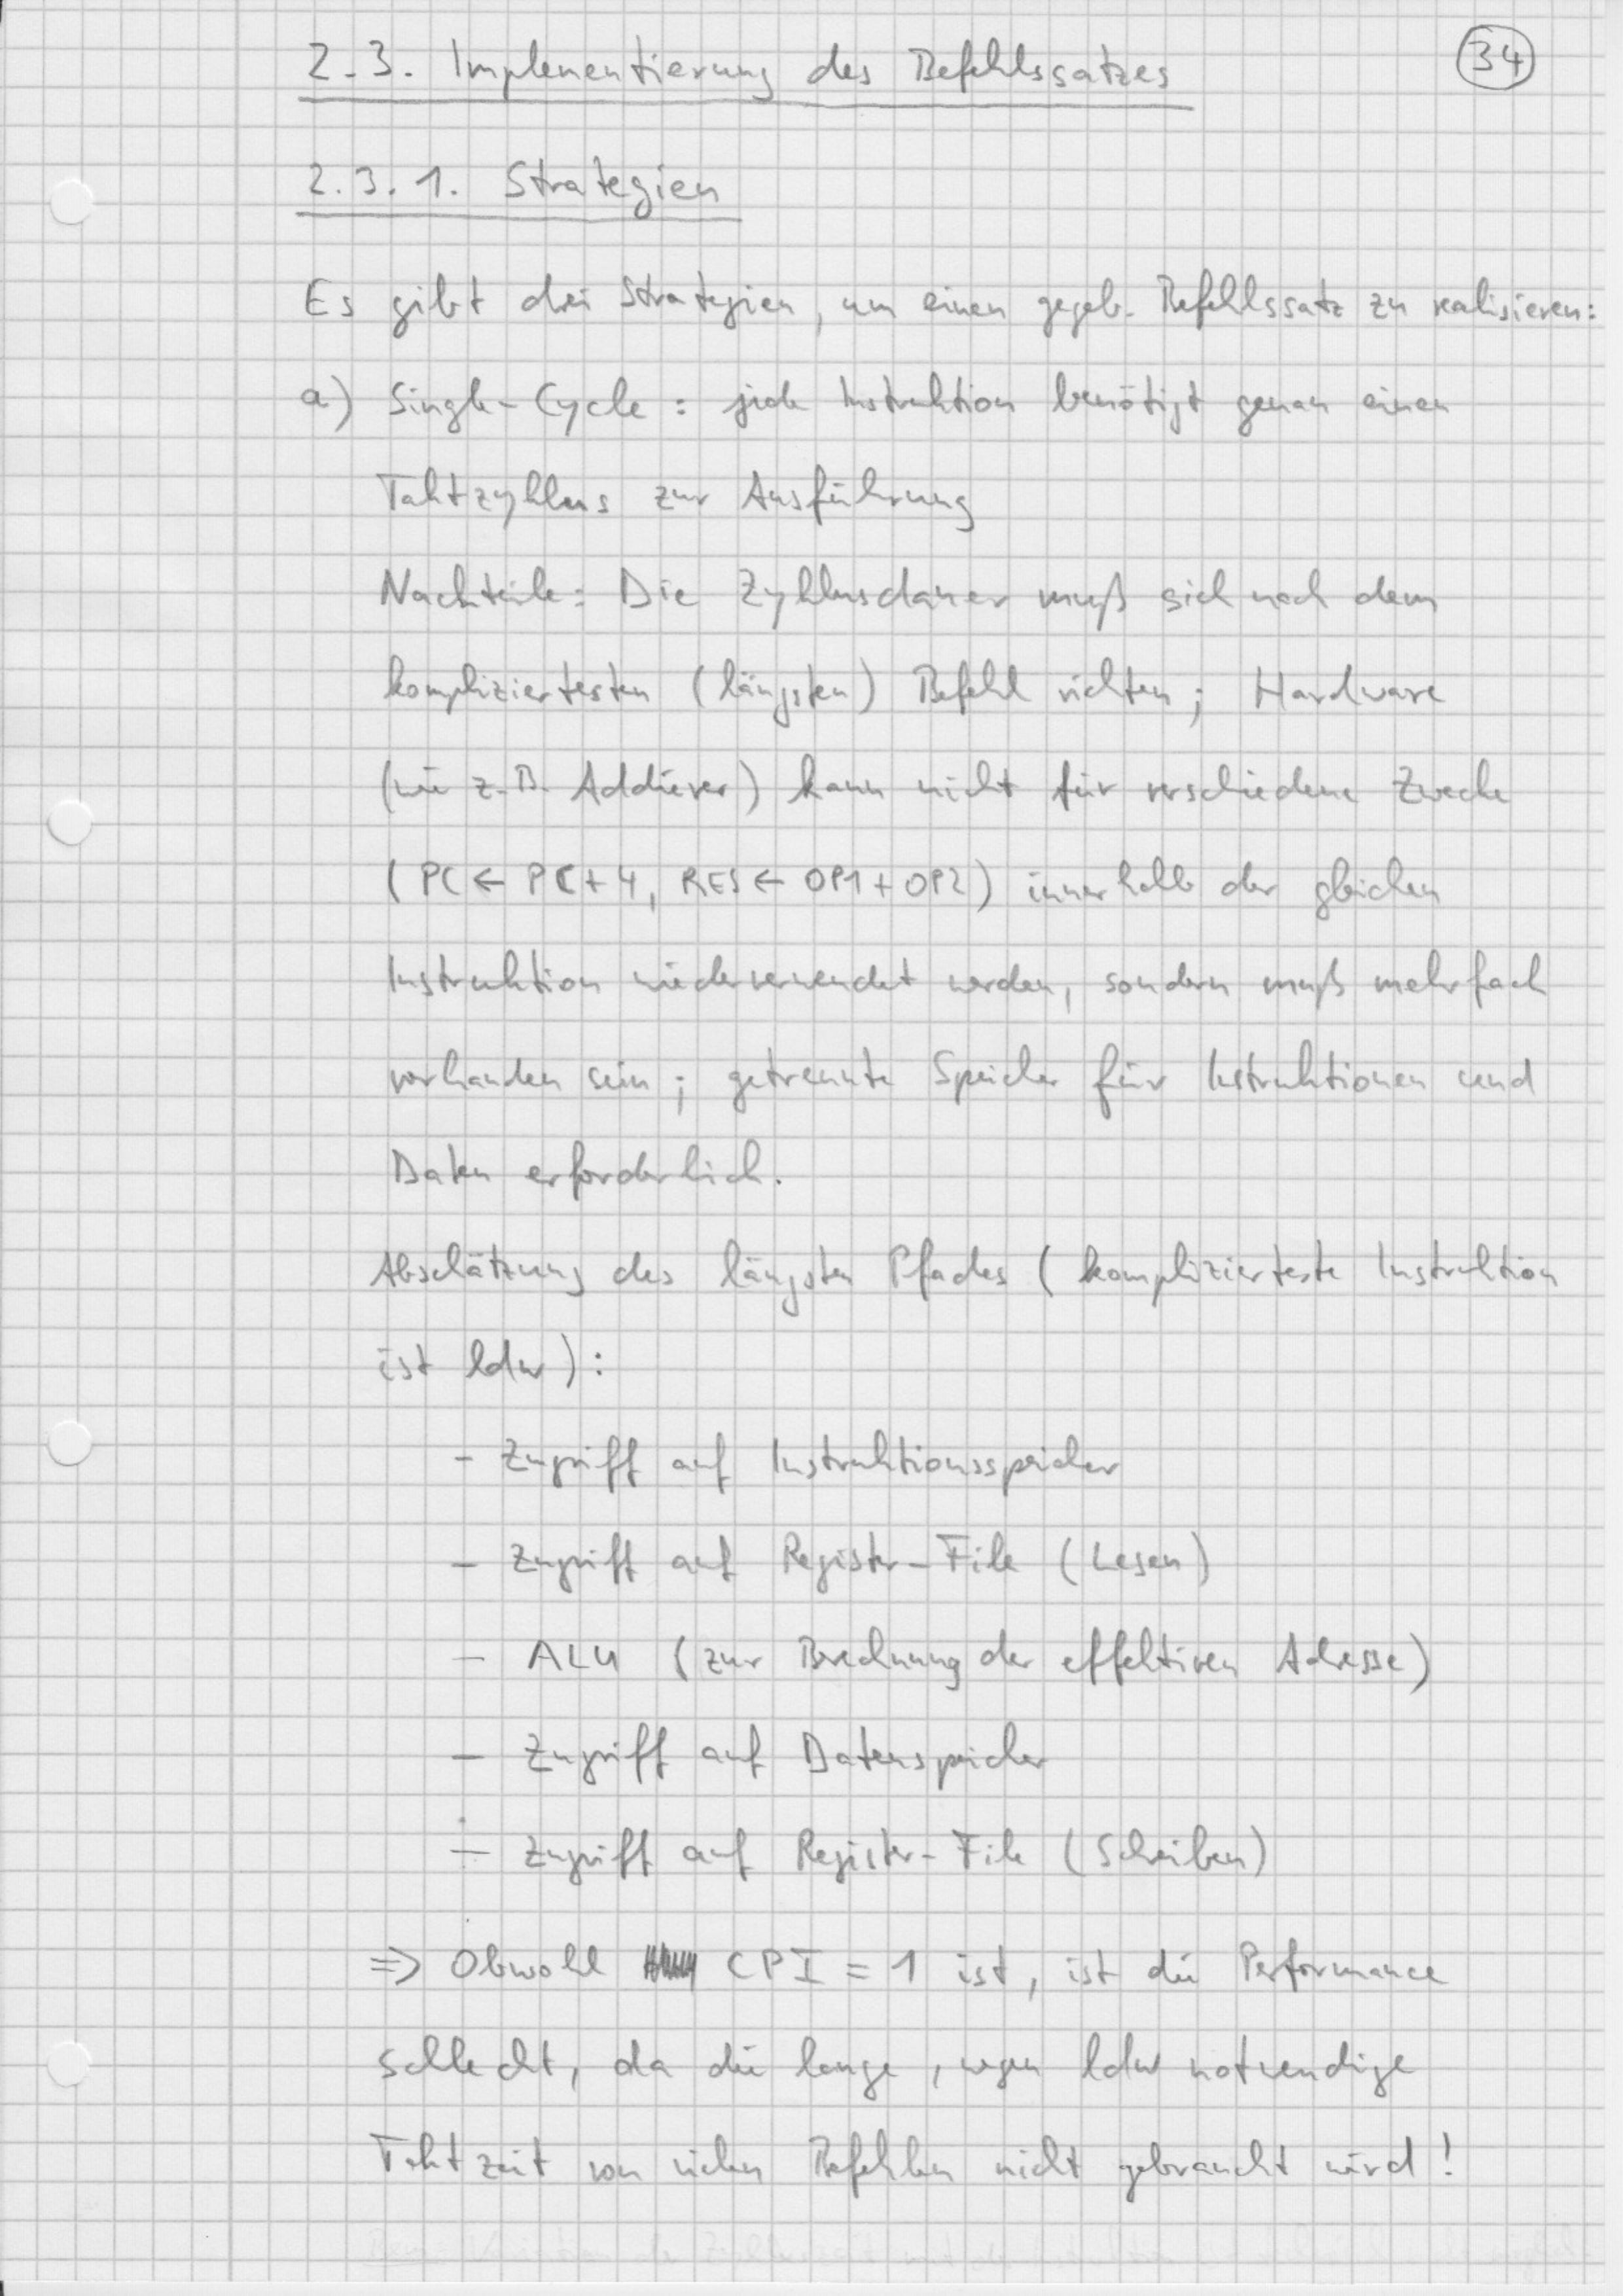 2.3. Implementierung des Befehlssatzes
34
2.3.1. Strategien
Es gibt drei Strategien, um einen gegeb. Befehlssatz zu realisieren:
a) Single-Cycle: jede Instruktion benötigt genau einen
Taktzyklus zur Ausführung
Nachteile: Die Zyklusdauer muß sich nach dem
kompliziertesten (längsten) Befehl richten; Hardware
(wie z.B. Addierer) kann nicht für verschiedene Zwecke
(PC ← PC+4, RES ← OP1+OP2) innerhalb der gleichen
Instruktion wiederverwendet werden, sondern muß mehrfach
vorhanden sein; getrennte Speicher für Instruktionen und
Daten erforderlich.
Abschätzung des längsten Pfades (komplizierteste Instruktion
ist ldw):
- Zugriff auf Instruktionsspeicher
- Zugriff auf Register-File (Lesen)
- ALU (zur Berechnung der effektiven Adresse)
- Zugriff auf Datenspeicher
- Zugriff auf Register-File (Schreiben)
⇒ Obwohl CPI = 1 ist, ist die Performance
schlecht, da die lange, wegen ldw notwendige
Taktzeit von vielen Befehlen nicht gebraucht wird!